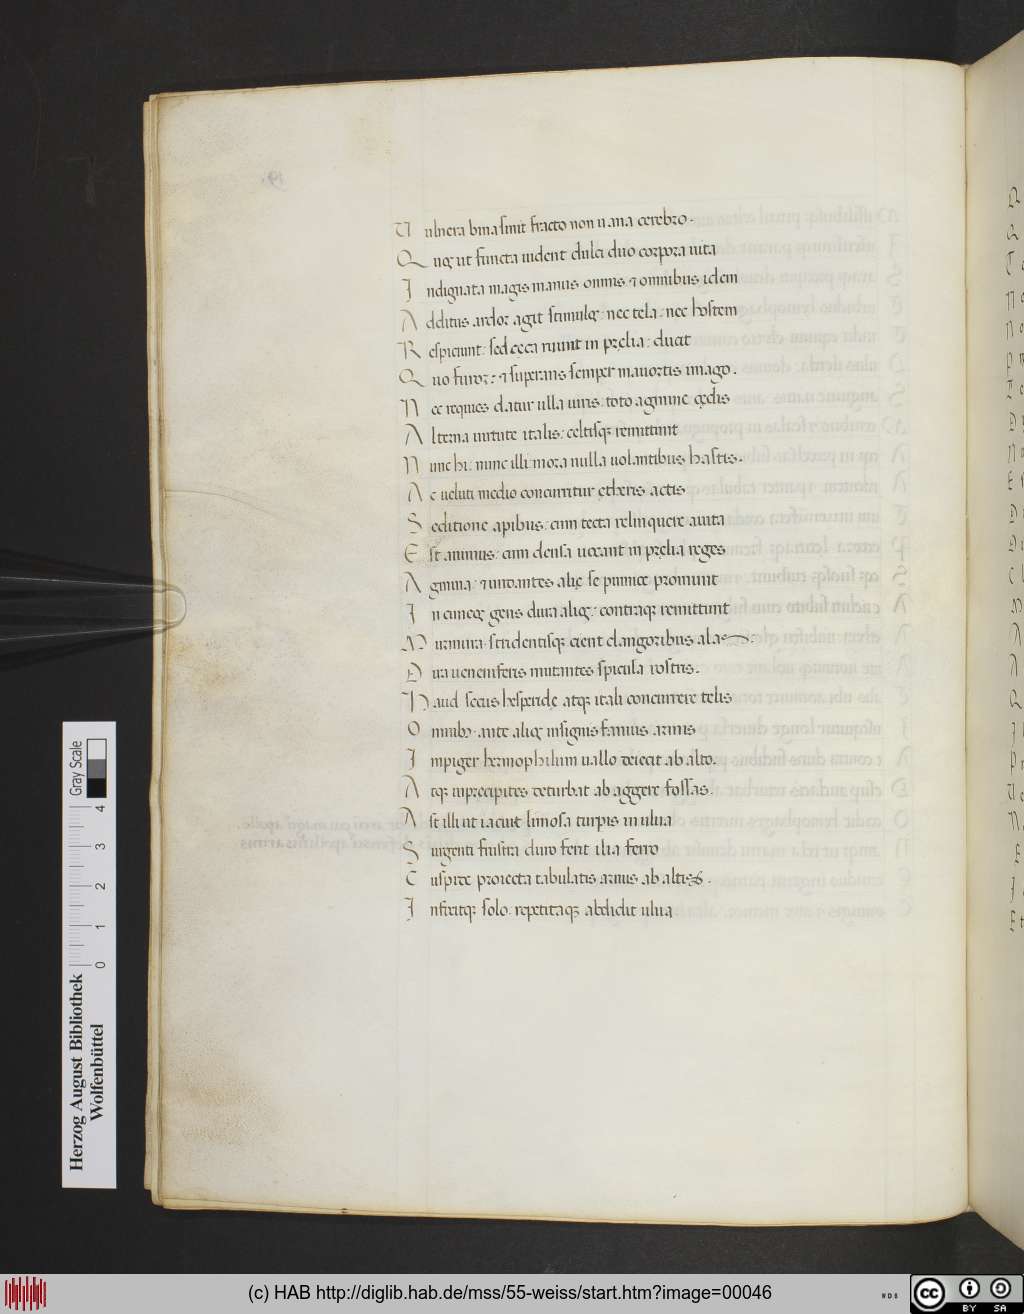 U ulnera bina sinit fracto non uana cerebro.
Q uę ut functa uident dulci duo corpora uita
I ndignata magis manus omnis ⁊ omnibus idem
A dditus ardor agit stimulꝫ: nec tela: nec hostem
R espiciunt: sed cęca ruunt in pręlia: ducit
Q uo furor: ⁊ superans semper mauortis imago.
N ec requies datur ulla uiris: toto agmine cędis
A lterna uirtute italis: celtisqꝫ remittunt
N unc hi: nunc illi: mora nulla uolantibus hastis.
A c ueluti medio concurritur ętheris actis
S editione apibus: cum tecta relinquere auita
E st animus: cum densa uocant in pręlia reges
A gmina: ⁊ uitantes alię se pumice promunt
I n cuneos gens dura alios: contraqꝫ remittunt
M urmura stridentisqꝫ cient clangoribus alas.
D ira ueneniferis mutantes spicula rostris.
H aud secus hesperidę atqꝫ itali concurrere telis
O mnibꝫ ante alios insignis famius armis
I mpiger hermophilum uallo deiecit ab alto.
A tqꝫ in pręcipites deturbat ab aggere fossas.
A st illi ut iacuit limosa turpis in ulua
S urgenti frustra duro ferit ilia ferro
C uspide proiecta tabulatis arduus ab altis.
I nfixitqꝫ solo. repetitaqꝫ abdidit ulua
Herzog August Bibliothek
Wolfenbüttel
0 1 2 3 4
Gray Scale
(c) HAB http://diglib.hab.de/mss/55-weiss/start.htm?image=00046
cc BY SA